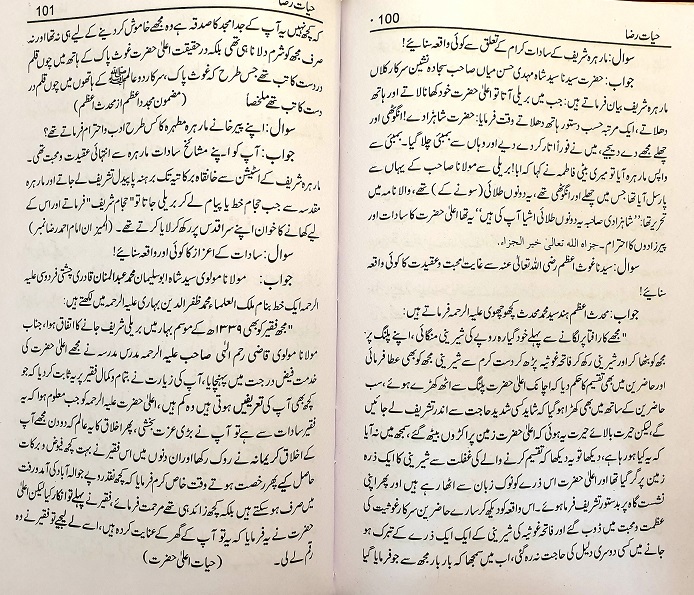 حیات رضا
100
سوال: مارہرہ شریف کے سادات کرام کے تعلق سے کوئی واقعہ سنائیے!
جواب: حضرت سیدنا سید شاہ مہدی حسن میاں صاحب سجادہ نشین سرکار کلاں
مارہرہ شریف بیان فرماتے ہیں: جب میں بریلی آتا تو اعلیٰ حضرت خود کھانا لاتے اور ہاتھ
دھلاتے، ایک مرتبہ حسب دستور ہاتھ دھلاتے وقت فرمایا: حضرت شاہزادے! انگوٹھی اور
چھلے مجھے دے دیجیے، میں نے فوراً اتار کر دے دیے اور وہاں سے بمبئی چلا گیا۔ بمبئی سے
واپس مارہرہ آیا تو میری بیٹی فاطمہ نے کہا کہ ابا! بریلی سے مولانا صاحب کے یہاں سے
پارسل آیا تھا جس میں چھلے اور انگوٹھی تھے، یہ دونوں طلائی (سونے کے) تھے، والا نامہ میں
تحریر تھا: ”شاہزادی صاحبہ یہ دونوں طلائی اشیا آپ کی ہیں“ یہ تھا اعلیٰ حضرت کا سادات اور
پیرزادوں کا احترام۔ جزاہ اللہ تعالیٰ خیر الجزاء۔
سوال: سیدنا غوث اعظم رضی اللہ تعالیٰ عنہ سے غایت محبت و عقیدت کا کوئی واقعہ
سنائیے!
جواب: محدث اعظم ہند سید محمد محدث کچھوچھوی علیہ الرحمہ فرماتے ہیں:
”مجھے کار افتا پر لگانے سے پہلے خود گیارہ روپے کی شیرینی منگائی، اپنے پلنگ پر
مجھ کو بٹھا کر اور شیرینی رکھ کر فاتحہ غوثیہ پڑھ کر دست کرم سے شیرینی مجھ کو بھی عطا فرمائی
اور حاضرین میں بھی تقسیم کا حکم دیا کہ اچانک اعلیٰ حضرت پلنگ سے اٹھ کھڑے ہوئے، سب
حاضرین کے ساتھ میں بھی کھڑا ہو گیا کہ شاید کسی شدید حاجت سے اندر تشریف لے جائیں
گے، لیکن حیرت بالائے حیرت یہ ہوئی کہ اعلیٰ حضرت زمین پر اکڑوں بیٹھ گئے، سمجھ میں نہ آیا
کہ یہ کیا ہو رہا ہے، دیکھا تو یہ دیکھا کہ تقسیم کرنے والے کی غفلت سے شیرینی کا ایک ذرہ
زمین پر گر گیا تھا اور اعلیٰ حضرت اس ذرے کو نوک زبان سے اٹھا رہے ہیں اور پھر اپنی
نشست گاہ پر بدستور تشریف فرما ہوئے۔ اس واقعہ کو دیکھ کر سارے حاضرین سرکار غوثیت کی
عظمت و محبت میں ڈوب گئے اور فاتحہ غوثیہ کی شیرینی کے ایک ایک ذرے کے تبرک ہو
جانے میں کسی دوسری دلیل کی حاجت نہ رہ گئی، اب میں سمجھا کہ بار بار مجھ سے جو فرمایا گیا
حیات رضا
101
کہ کچھ نہیں یہ آپ کے جد امجد کا صدقہ ہے وہ مجھے خاموش کر دینے کے لیے ہی نہ تھا اور نہ
صرف مجھ کو شرم دلانا ہی تھی بلکہ درحقیقت اعلیٰ حضرت غوث پاک کے ہاتھ میں چوں قلم
در دست کاتب تھے جس طرح کہ غوث پاک، سرکار دو عالم ﷺ کے ہاتھوں میں چوں قلم در
دست کاتب تھے ملخصاً (مضمون مجدد اعظم از محدث اعظم)
سوال: اپنے پیر خانے مارہرہ مطہرہ کا کس طرح ادب و احترام فرماتے تھے؟
جواب: آپ کو اپنے مشائخ سادات مارہرہ سے انتہائی عقیدت و محبت تھی۔
مارہرہ شریف کے اسٹیشن سے خانقاہ برکاتیہ تک برہنہ پا پیدل تشریف لے جاتے اور مارہرہ
مقدسہ سے جب حجام خط یا پیام لے کر بریلی جاتا تو ”حجام شریف“ فرماتے اور اس کے
لیے کھانے کا خوان اپنے سر اقدس پر رکھ کر لایا کرتے تھے۔ (المیزان امام احمد رضا نمبر)
سوال: سادات کے اعزاز کا کوئی اور واقعہ سنائیے!
جواب: مولانا مولوی سید شاہ ابو سلیمان محمد عبدالمنان قادری چشتی فردوسی علیہ
الرحمہ ایک خط بنام ملک العلماء محمد ظفر الدین بہاری علیہ الرحمہ میں لکھتے ہیں:
”مجھ فقیر کو بھی ۱۳۳۹ھ کے موسم بہار میں بریلی شریف جانے کا اتفاق ہوا، جناب
مولانا مولوی قاضی رحم الٰہی صاحب علیہ الرحمہ مدرس مدرسہ نے مجھے اعلیٰ حضرت کی
خدمت فیض درجت میں پہنچایا، آپ کی زیارت نے بتمام و کمال فقیر پر یہ ثابت کر دیا کہ جو
کچھ بھی آپ کی تعریفیں ہوتی ہیں وہ کم ہیں، اعلیٰ حضرت علیہ الرحمہ کو جب معلوم ہوا کہ یہ
فقیر سادات سے ہے تو آپ نے بڑی عزت بخشی، پھر اخلاق کا یہ عالم کہ دو دن مجھے آپ
کے اخلاق کریمانہ نے روک رکھا اور ان دنوں میں اس فقیر نے بہت کچھ فیوض و برکات
حاصل کیے پھر رخصت ہوتے وقت خاص کرم فرمایا کہ کچھ نقد روپے جو الہ آباد کی آمد و رفت
میں صرف ہو سکتے ہیں بلکہ کچھ زائد ہی تھے مرحمت فرمائے، فقیر نے پہلے تو انکار کیا لیکن اعلیٰ
حضرت نے یہ فرمایا کہ یہ تو آپ کے گھر کے عنایت کردہ ہیں، اسے لے لیجیے تو فقیر نے وہ
رقم لے لی۔ (حیات اعلیٰ حضرت)